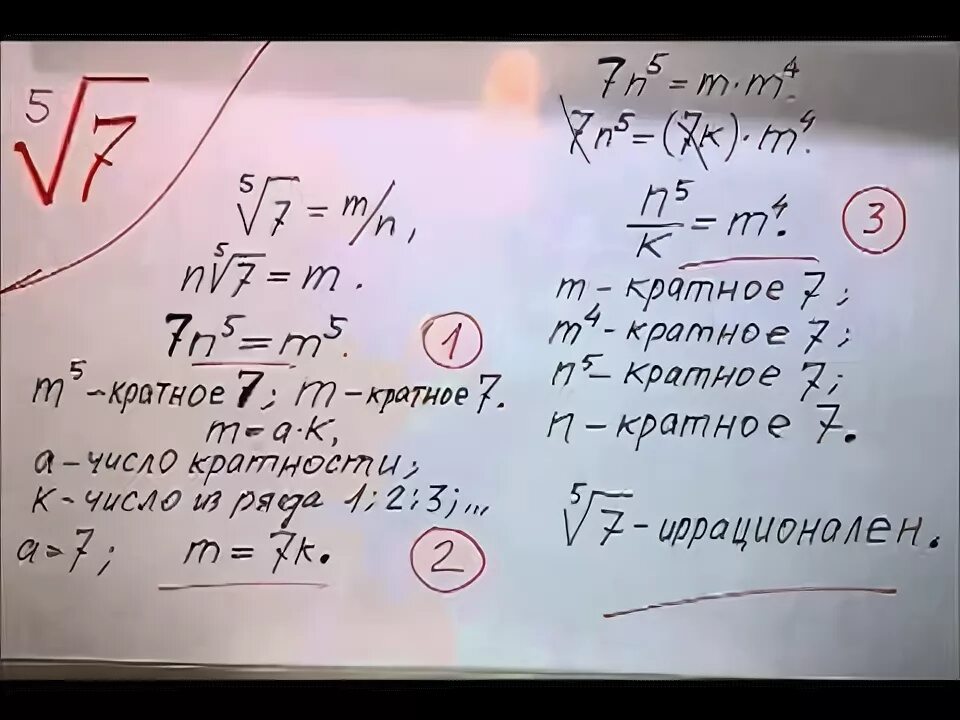 ⁵√7
⁵√7 = m/n,
n⁵√7 = m.
7n⁵ = m⁵. ①
m⁵ - кратное 7; m - кратное 7.
m = a·k,
a - число кратности;
k - число из ряда 1; 2; 3; ...
a = 7; m = 7k. ②
7n⁵ = m·m⁴.
7n⁵ = (7k)·m⁴.
n⁵/k = m⁴. ③
m - кратное 7;
m⁴ - кратное 7;
n⁵ - кратное 7;
n - кратное 7.
⁵√7 - иррационален.